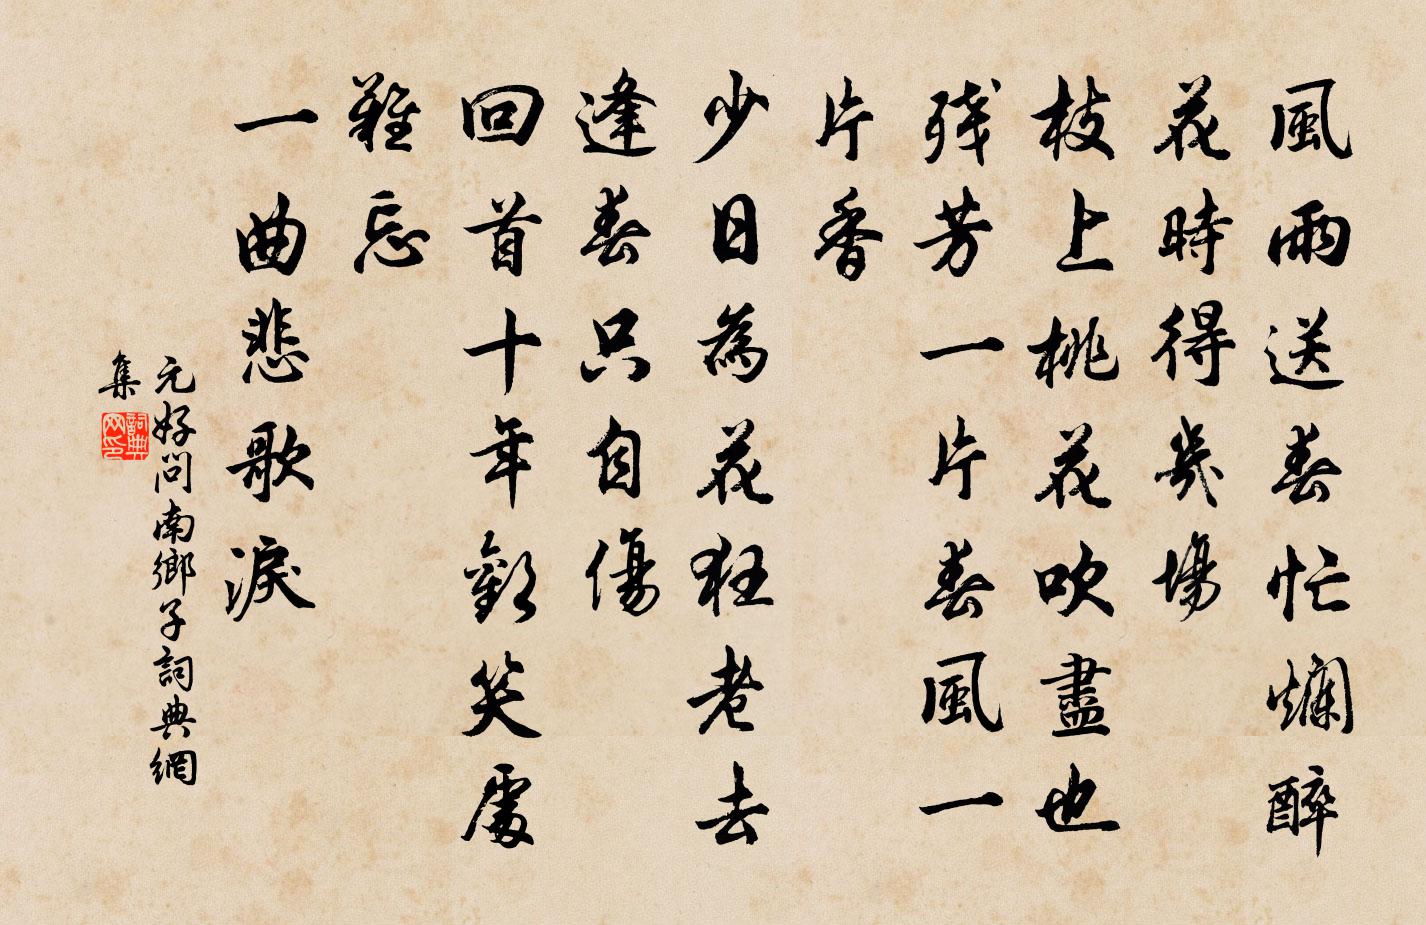 風雨送春忙爛醉
花時得幾場
枝上桃花吹盡也
殘芳一片春風一
片香
少日為花狂老去
逢春只自傷
回首十年歡笑處
難忘
一曲悲歌淚
元好問南鄉子詞典網
集
詞典
网印